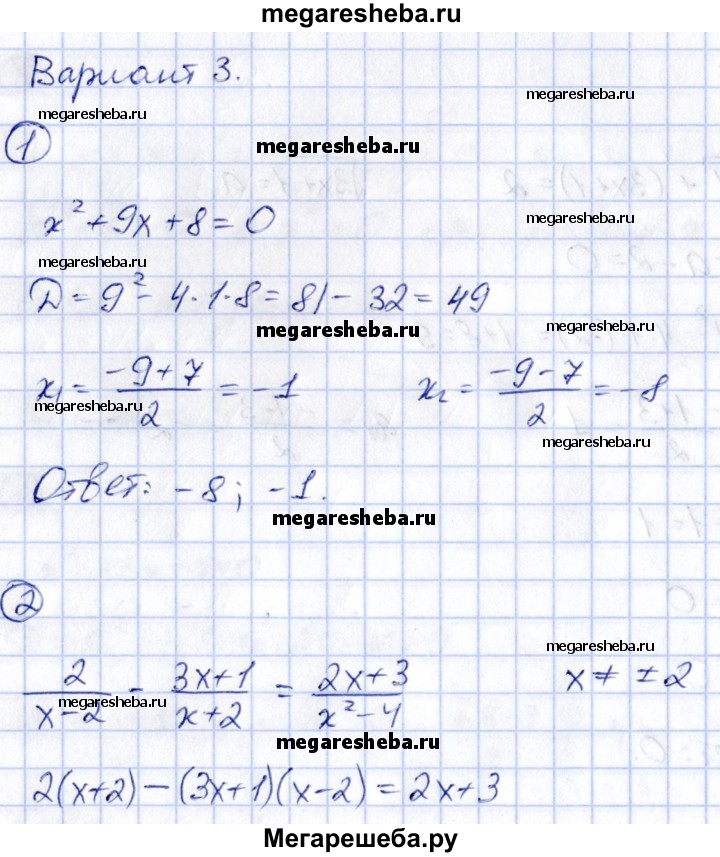 megaresheba.ru
Вариант 3.
megaresheba.ru
megaresheba.ru
1
megaresheba.ru
x² + 9x + 8 = 0
megaresheba.ru
megaresheba.ru
Д = 9² - 4·1·8 = 81 - 32 = 49
megaresheba.ru
megaresheba.ru
x₁ = (-9+7)/2 = -1 x₂ = (-9-7)/2 = -8
megaresheba.ru
megaresheba.ru
Ответ: -8; -1.
megaresheba.ru
2
megaresheba.ru
2/(x-2) - (3x+1)/(x+2) = (2x+3)/(x²-4) x ≠ ±2
megaresheba.ru
megaresheba.ru
2(x+2) - (3x+1)(x-2) = 2x+3
megaresheba.ru
Мегарешеба.ру